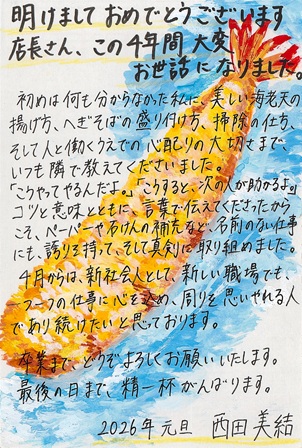 明けまして おめでとうございます
店長さん、この4年間 大変
お世話になりました。
初めは何も分からなかった私に、美しい海老天の
揚げ方、へぎそばの盛り付け方、掃除の仕方、
そして人と働くうえでの心配りの大切さまで、
いつも隣で教えてくださいました。
「こうやってやるんだよ。」「こうすると、次の人が助かるよ。」
コツと意味とともに、言葉で伝えてくださったから
こそ、ペーパーやおけんの補充など、名前のない仕事
にも、誇りを持って、そして真剣に取り組めました。
4月からは、新社会人として 新しい職場でも、
一つ一つの仕事に心を込め、周りを思いやれる人
であり続けたいと思っております。
卒業まで、どうぞよろしくお願いいたします。
最後の日まで、精一杯がんばります。
2026年 元旦 西田 美結